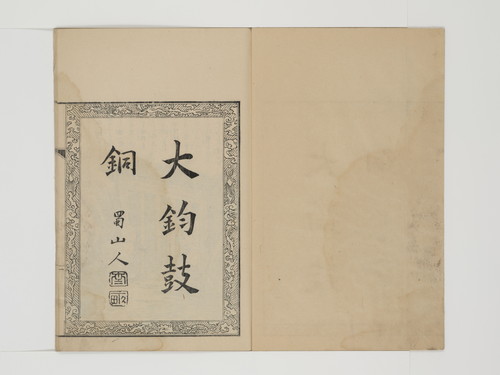 大鈞鼓
銅
蜀山人